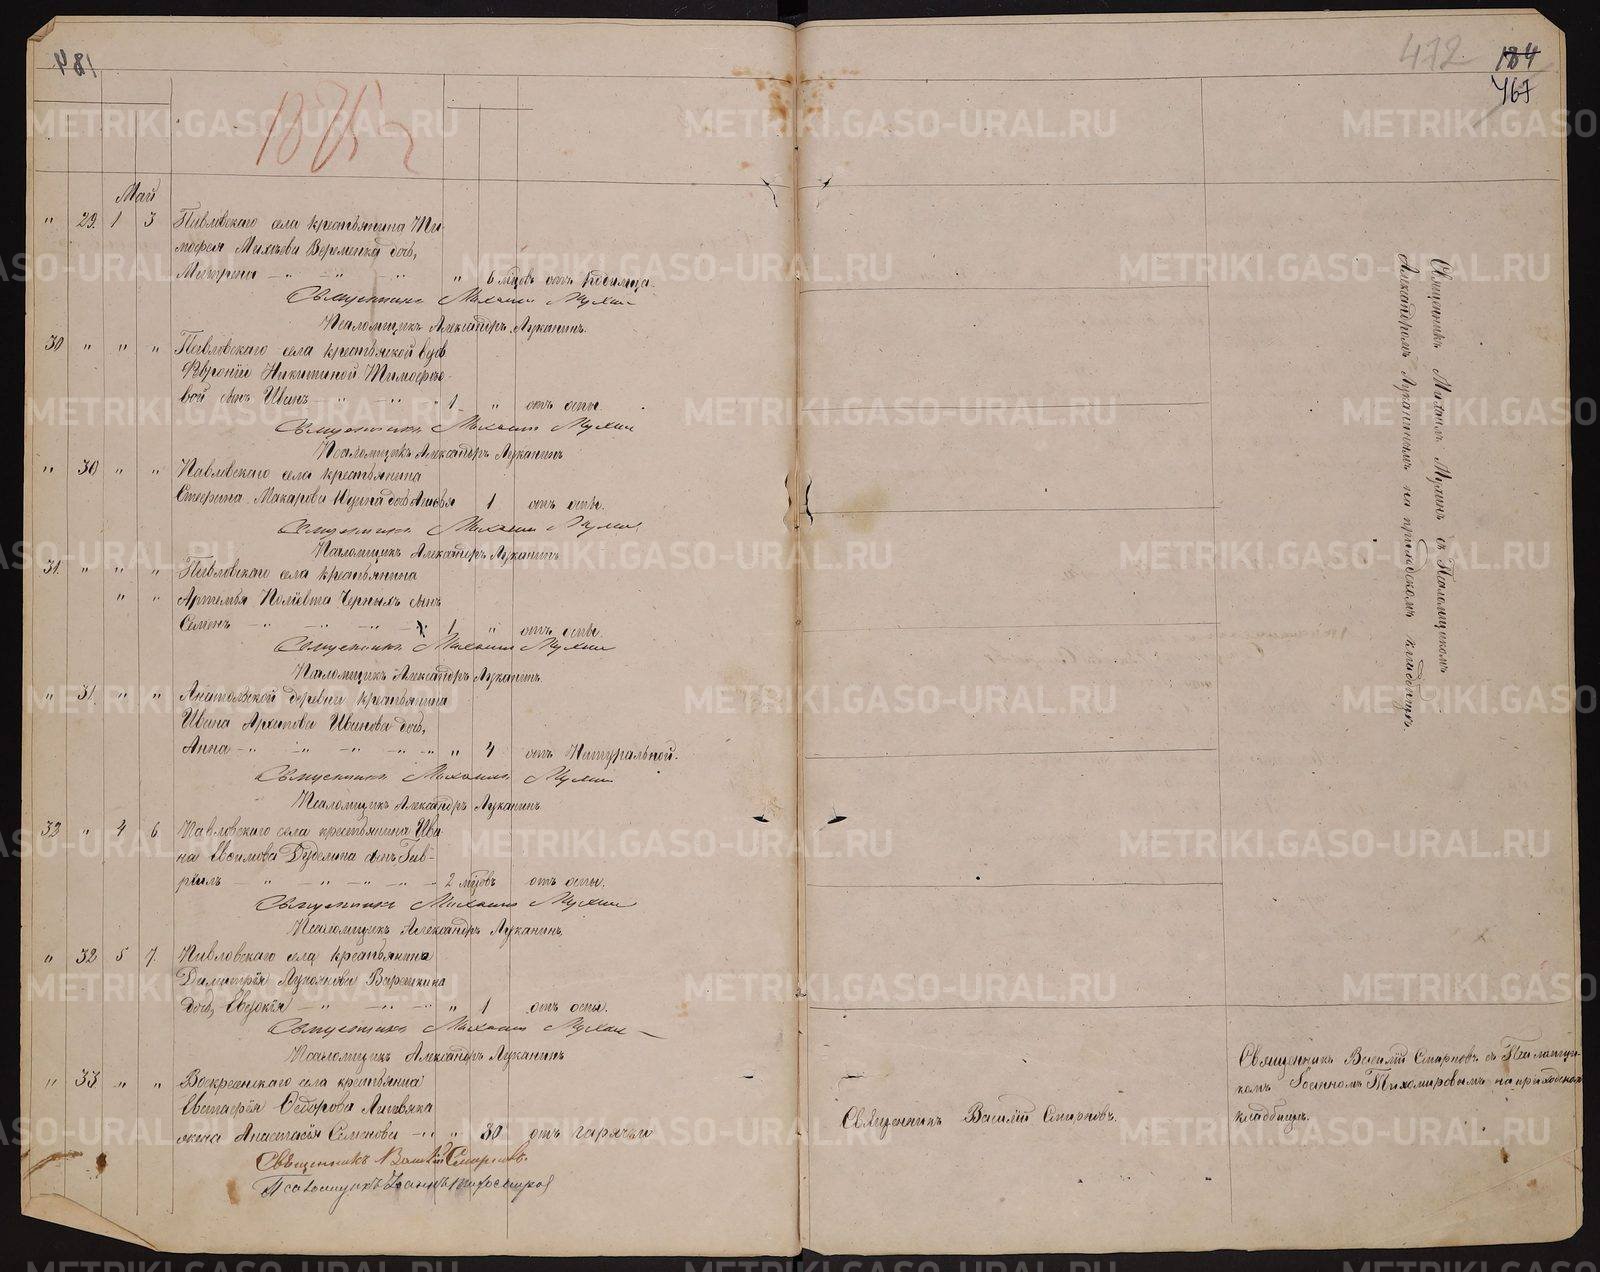 184
1875
Май
" 29. 1 3 Павловскаго села крестьянина Ти-
мофея Михѣева Веременка дочь
Матрена — " — " — " " 6 мѣсяцовъ отъ родимца.
Священникъ Михаилъ Мухинъ
Псаломщикъ Александръ Луканинъ.
30 " " " Павловскаго села крестьянской вдов.
Февроніи Никитиной Тимофѣе-
вой сынъ Иванъ — " — " — " 1 " отъ оспы.
Священникъ Михаилъ Мухинъ
Псаломщикъ Александръ Луканинъ
" 30 " " Павловскаго села крестьянина
Макарова дочь 1 отъ оспы.
Священникъ Михаилъ Мухинъ
Псаломщикъ Александръ Луканинъ
31. " " " Павловскаго села крестьянина
" " Артемья Черныхъ сынъ
Семенъ — " — " — " 1 " отъ оспы.
Священникъ Михаилъ Мухинъ
Псаломщикъ Александръ Луканинъ.
" 31. " " Анатольской деревни крестьянина
Ивана Архипова Иванова дочь
Анна — " — " — " — " " 4 отъ Натуральной.
Священникъ Михаилъ Мухинъ
Псаломщикъ Александръ Луканинъ
32 " 4 6. Павловскаго села крестьянина Ива-
на сынъ Гав-
рiилъ — " — " — " — " — 2 мѣсяцовъ отъ оспы.
Священникъ Михаилъ Мухинъ
Псаломщикъ Александръ Луканинъ.
" 32 5 7. Павловскаго села крестьянина
Димитрія Варенкина
дочь Евдокія — " — " — " " 1 отъ оспы.
Священникъ Михаилъ Мухинъ
Псаломщикъ Александръ Луканинъ
" 33 " " Воскресенскаго села крестьянина
Евстафія Ѳедорова Литвяка
жена Анастасія Семенова — " " 30 отъ горячки
Священникъ Василій Смирновъ.
Псаломщикъ Іоаннъ Тихомировъ
472 184
467
Священникъ Михаилъ Мухинъ съ Псаломщикомъ
Александромъ Луканинымъ на приходскомъ кладбищѣ.
Священникъ Василій Смирновъ.
Священникъ Василій Смирновъ съ Псаломщи-
комъ Іоанномъ Тихомировымъ на приходскомъ
кладбищѣ.
METRIKI.GASO-URAL.RU